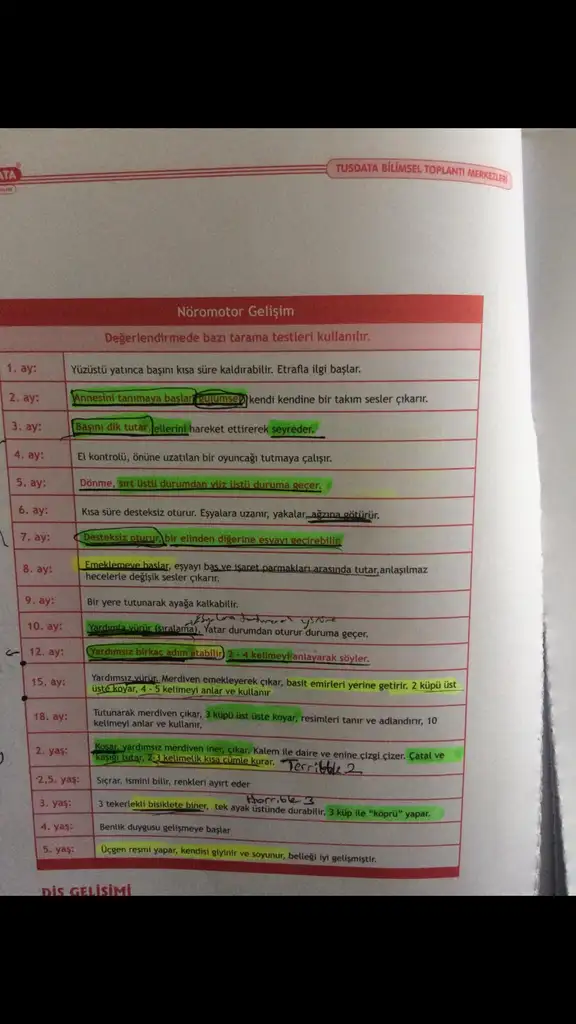 ATA
TUSDATA BİLİMSEL TOPLANTI MERKEZLERİ
Nöromotor Gelişim
Değerlendirmede bazı tarama testleri kullanılır.
1. ay: Yüzüstü yatınca başını kısa süre kaldırabilir. Etrafla ilgi başlar.
2. ay: Annesini tanımaya başlar, gülümser, kendi kendine bir takım sesler çıkarır.
3. ay: Başını dik tutar, ellerini hareket ettirerek seyreder.
4. ay: El kontrolü, önüne uzatılan bir oyuncağı tutmaya çalışır.
5. ay: Dönme, sırt üstü durumdan yüz üstü duruma geçer.
6. ay: Kısa süre desteksiz oturur. Eşyalara uzanır, yakalar, ağzına götürür.
7. ay: Desteksiz oturur, bir elinden diğerine eşyayı geçirebilir
8. ay: Emeklemeye başlar, eşyayı baş ve işaret parmakları arasında tutar, anlaşılmaz
hecelerle değişik sesler çıkarır.
9. ay: Bir yere tutunarak ayağa kalkabilir.
10. ay: Yardımla yürür (sıralama), Yatar durumdan oturur duruma geçer.
12. ay: Yardımsız birkaç adım atabilir, 2 - 4 kelimeyi anlayarak söyler.
15. ay: Yardımsız yürür. Merdiven emekleyerek çıkar, basit emirleri yerine getirir. 2 küpü üst
üste koyar, 4 - 5 kelimeyi anlar ve kullanır
18. ay: Tutunarak merdiven çıkar, 3 küpü üst üste koyar, resimleri tanır ve adlandırır, 10
kelimeyi anlar ve kullanır,
2. yaş: Koşar, yardımsız merdiven iner, çıkar. Kalem ile daire ve enine çizgi çizer. Çatal ve
kaşığı tutar, 2-3 kelimelik kısa cümle kurar. Terrible 2
2,5. yaş: Sıçrar, ismini bilir, renkleri ayırt eder
Horrible 3
3. yaş: 3 tekerlekli bisiklete biner, tek ayak üstünde durabilir, 3 küp ile "köprü" yapar.
4. yaş: Benlik duygusu gelişmeye başlar
5. yaş: Üçgen resmi yapar, kendisi giyinir ve soyunur, belleği iyi gelişmiştir.
DİŞ GELİŞİMİ